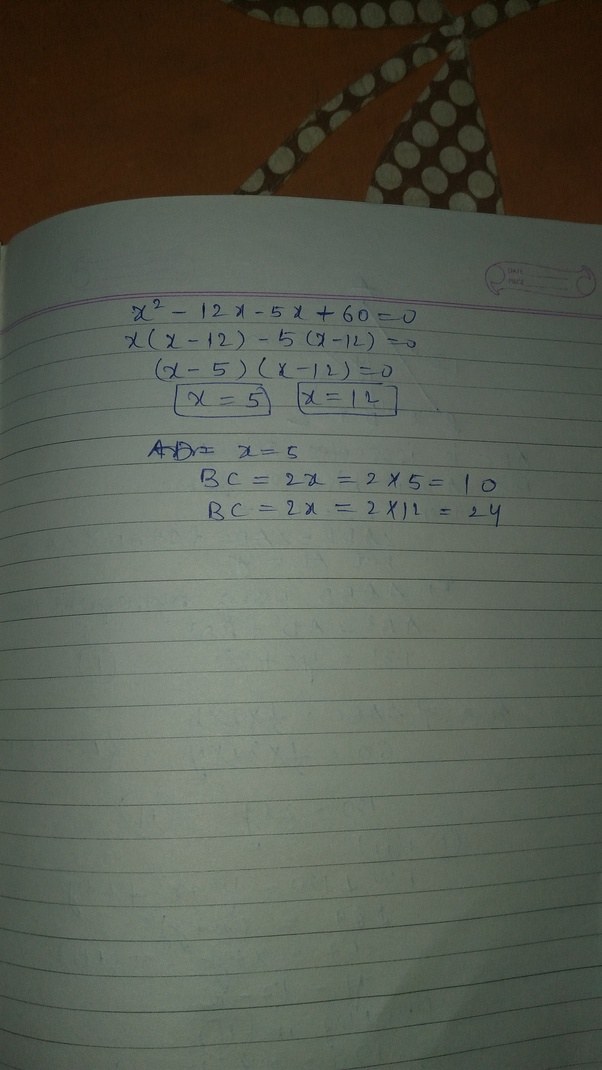 x² - 12x - 5x + 60 = 0
x(x - 12) - 5(x-12) = 0
(x - 5)(x - 12) = 0
x = 5 x = 12
x = 5
BC = 2x = 2×5 = 10
BC = 2x = 2×12 = 24